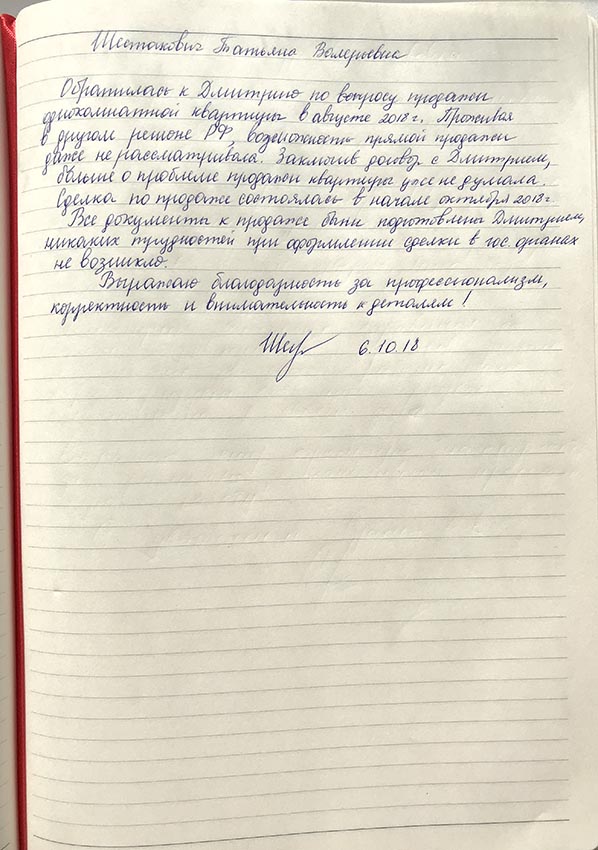 Шестакович Татьяна Валерьевна
Обратилась к Дмитрию по вопросу продажи
однокомнатной квартиры в августе 2018 г. Проживая
в другом регионе РФ, возможность прямой продажи
даже не рассматривала. Заключив договор с Дмитрием,
больше о проблеме продажи квартиры уже не думала.
Сделка по продаже состоялась в начале октября 2018 г.
Все документы к продаже были подготовлены Дмитрием,
никаких трудностей при оформлении сделки в гос. органах
не возникло.
Выражаю благодарность за профессионализм,
корректность и внимательность к деталям!
6.10.18